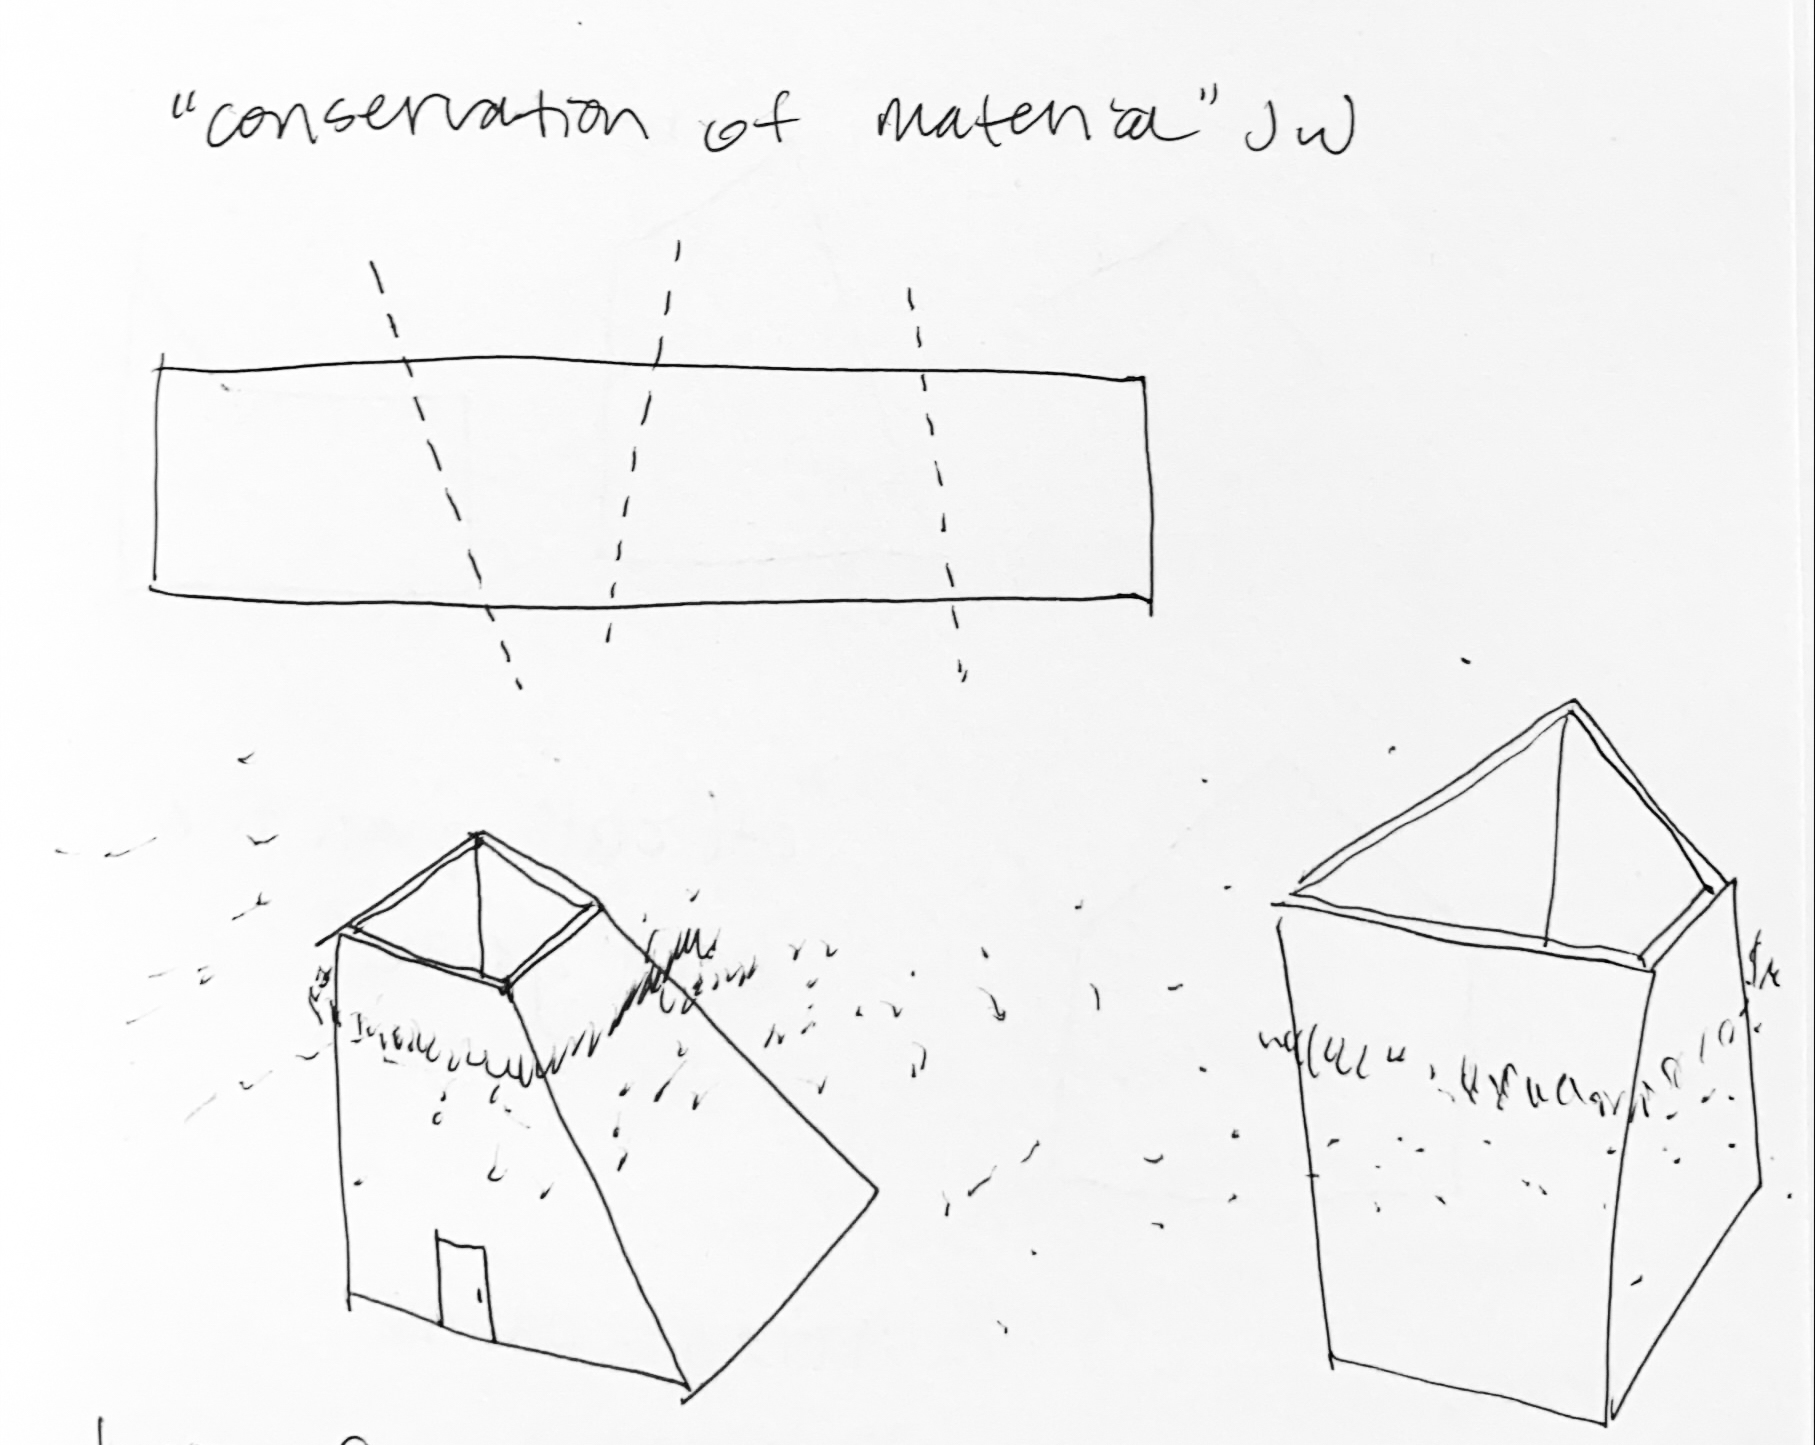 "conservation of material" JW